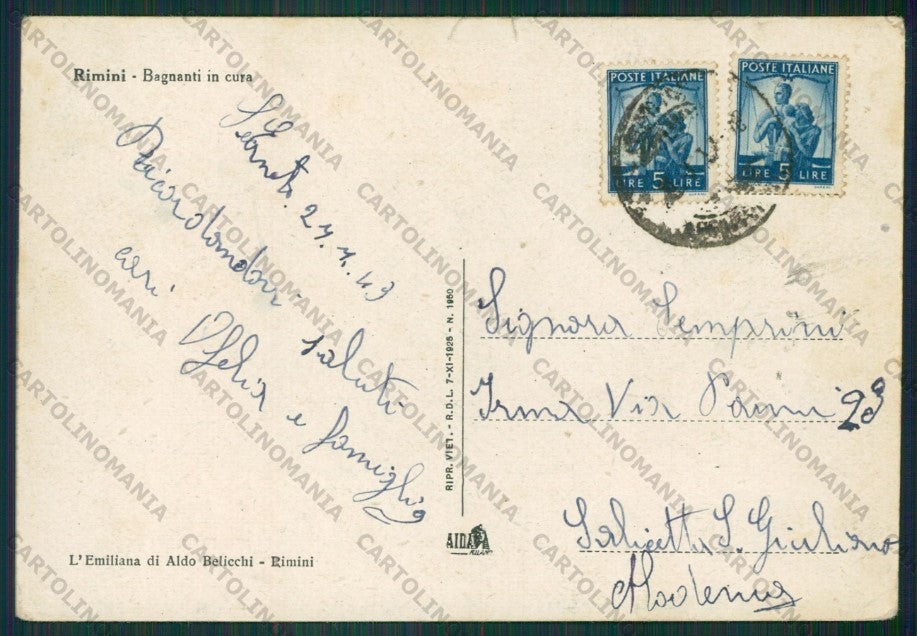 Rimini - Bagnanti in cura
POSTE ITALIANE
LIRE 5 LIRE
POSTE ITALIANE
LIRE 5 LIRE
27.7.49
Ricordandovi
cari saluti
Ofelia e famiglia
RIPR. VIET. - R.D.L. 7-XI-1925 - N. 1950
Signora Semprini
Irma Via Panni 23
Saliceta S. Giuliano
Modena
AIDA
MILANO
L'Emiliana di Aldo Belicchi - Rimini
CARTOLINOMANIA